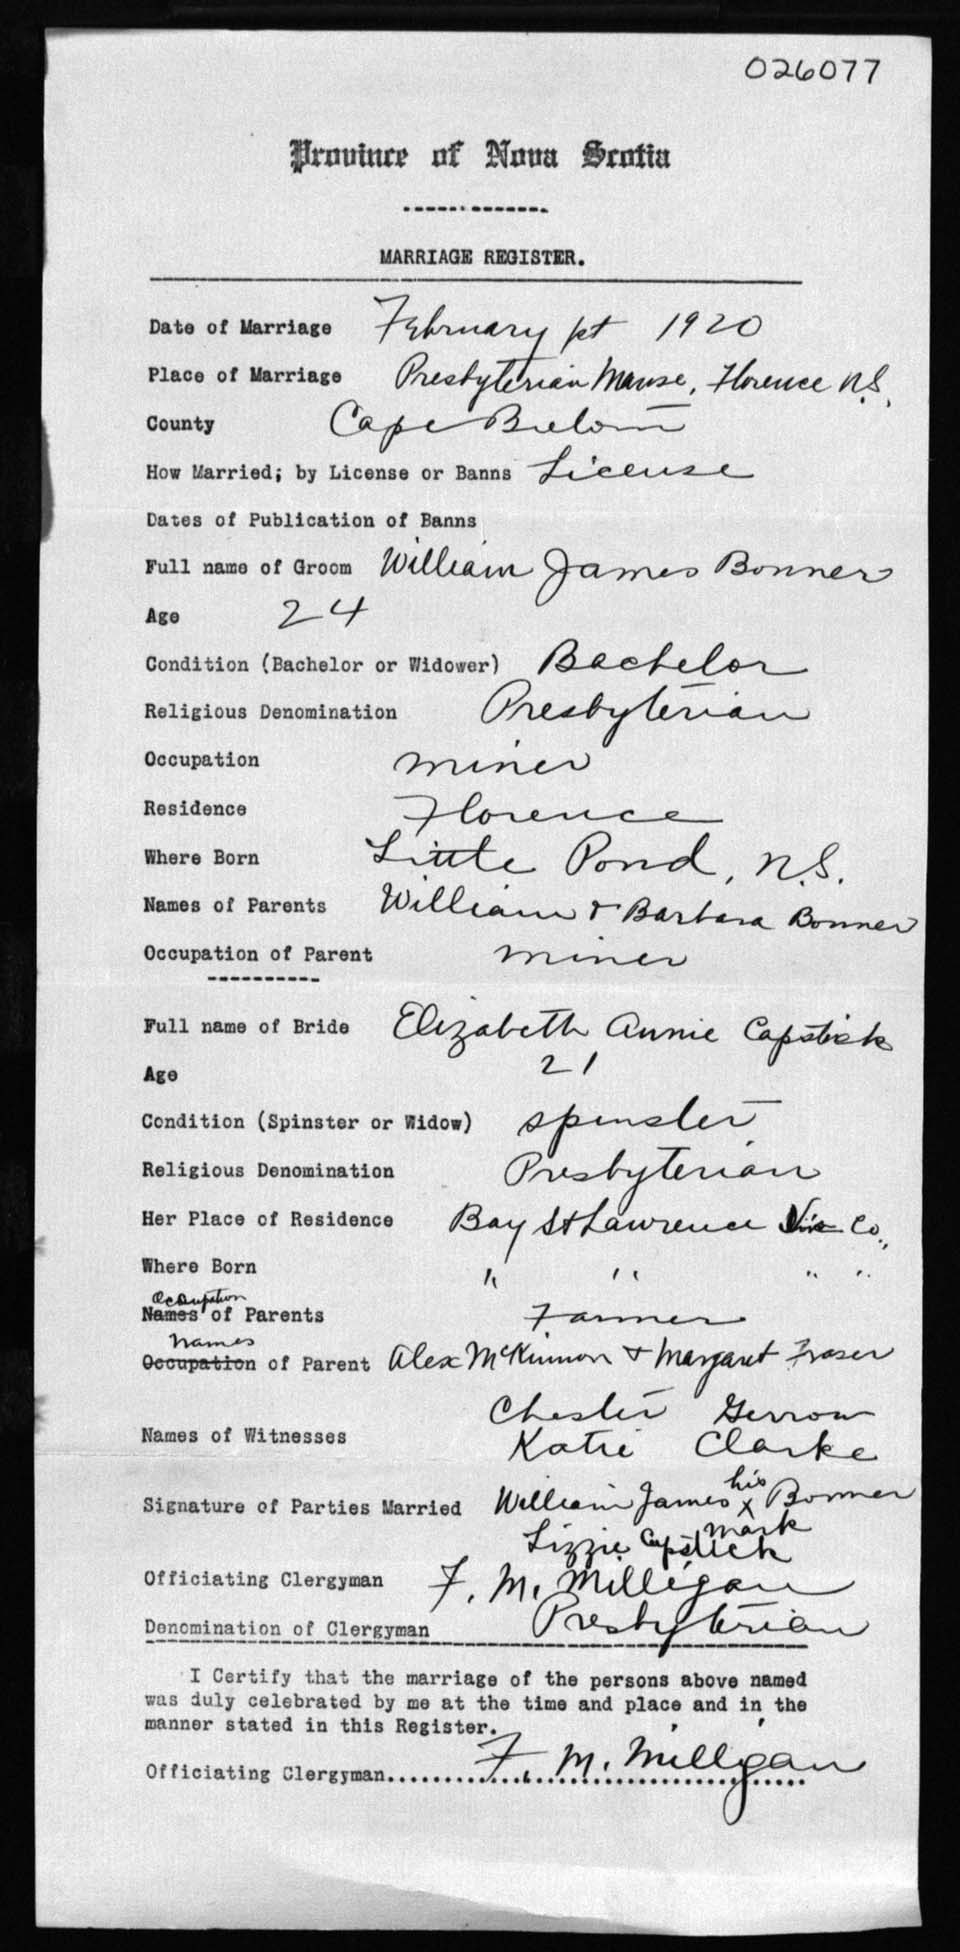 026077
Province of Nova Scotia
MARRIAGE REGISTER.
Date of Marriage February 1st 1920
Place of Marriage Presbyterian Manse, Florence N.S.
County Cape Breton
How Married; by License or Banns License
Dates of Publication of Banns
Full name of Groom William James Bonner
Age 24
Condition (Bachelor or Widower) Bachelor
Religious Denomination Presbyterian
Occupation miner
Residence Florence
Where Born Little Pond, N.S.
Names of Parents William & Barbara Bonner
Occupation of Parent miner
Full name of Bride Elizabeth Annie Capstick
Age 21
Condition (Spinster or Widow) spinster
Religious Denomination Presbyterian
Her Place of Residence Bay St Lawrence Vic Co.,
Where Born " " " "
Occupation
Names of Parents Farmer
Names
Occupation of Parent Alex McKinnon & Margaret Fraser
Chester
Names of Witnesses Katie Clarke
Signature of Parties Married William James his x mark Bonner
Lizzie Capstick
Officiating Clergyman F. M. Milligan
Denomination of Clergyman Presbyterian
I Certify that the marriage of the persons above named
was duly celebrated by me at the time and place and in the
manner stated in this Register.
Officiating Clergyman F. M. Milligan